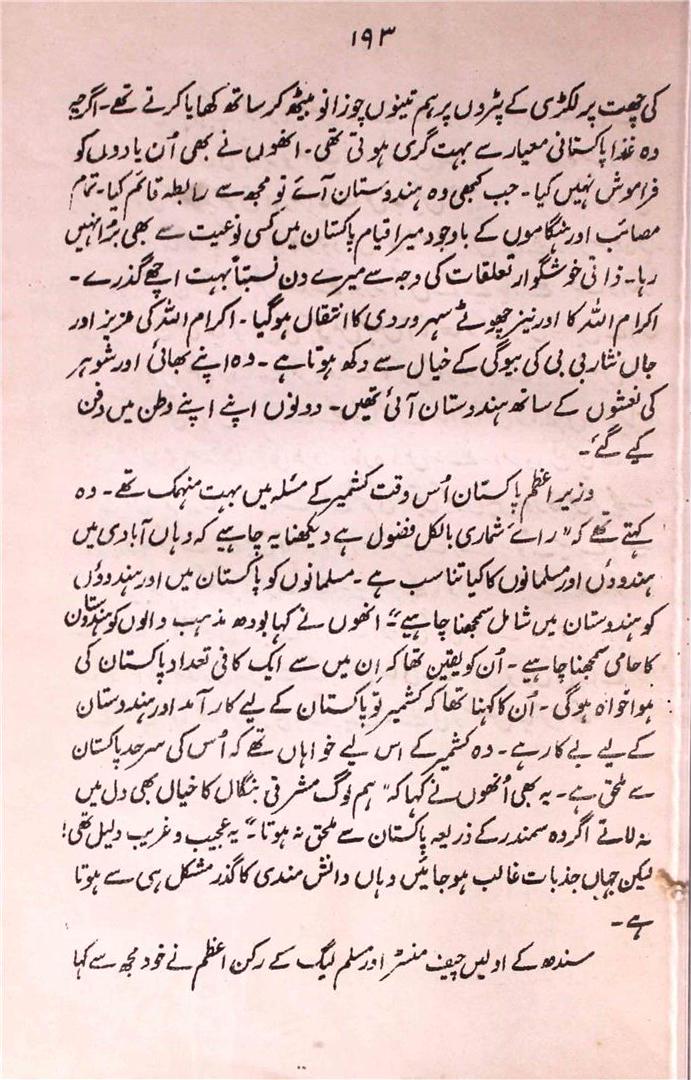 ۱۹۳
کی چھت پر لکڑی کے پٹروں پر ہم تینوں چوزانو بیٹھ کر ساتھ کھایا کرتے تھے۔ اگرچہ
وہ غذا پاکستانی معیار سے بہت گری ہوتی تھی۔ انھوں نے بھی اُن یادوں کو
فراموش نہیں کیا۔ جب کبھی وہ ہندوستان آئے تو مجھ سے رابطہ قائم کیا۔ تمام
مصائب اور ہنگاموں کے باوجود میرا قیام پاکستان میں کسی نوعیت سے بھی بُرا نہیں
رہا۔ ذاتی خوشگوار تعلقات کی وجہ سے میرے دن نسبتاً بہت اچھے گذرے۔
اکرام اللہ کا اور نیز چھوٹے سہروردی کا انتقال ہو گیا۔ اکرام اللہ کی عزیز اور
جاں نثار بی بی کی بیوگی کے خیال سے دکھ ہوتا ہے۔ وہ اپنے بھائی اور شوہر
کی نعشوں کے ساتھ ہندوستان آئی تھیں۔ دونوں اپنے اپنے وطن میں دفن
کیے گئے۔
وزیر اعظم پاکستان اُس وقت کشمیر کے مسٔلہ میں بہت منہمک تھے۔ وہ
کہتے تھے کہ ”رائے شماری بالکل فضول ہے دیکھنا یہ چاہیے کہ وہاں آبادی میں
ہندوؤں اور مسلمانوں کا کیا تناسب ہے۔ مسلمانوں کو پاکستان میں اور ہندوؤں
کو ہندوستان میں شامل سمجھنا چاہیے“۔ انھوں نے کہا بودھ مذہب والوں کو ہندوستان
کا حامی سمجھنا چاہیے۔ اُن کو یقین تھا کہ اِن میں سے ایک کافی تعداد پاکستان کی
ہوا خواہ ہوگی۔ اُن کا کہنا تھا کہ کشمیر تو پاکستان کے لیے کار آمد اور ہندوستان
کے لیے بے کار ہے۔ وہ کشمیر کے اس لیے خواہاں تھے کہ اُس کی سرحد پاکستان
سے ملحق ہے۔ یہ بھی اُنھوں نے کہا کہ ”ہم لوگ مشرقی بنگال کا خیال بھی دل میں
نہ لاتے اگر وہ سمندر کے ذریعہ پاکستان سے ملحق نہ ہوتا“۔ یہ عجیب و غریب دلیل تھی!
لیکن جہاں جذبات غالب ہو جائیں وہاں دانش مندی کا گذر مشکل ہی سے ہوتا
ہے۔
سندھ کے اولیں چیف منسٹر اور مسلم لیگ کے رکن اعظم نے خود مجھ سے کہا